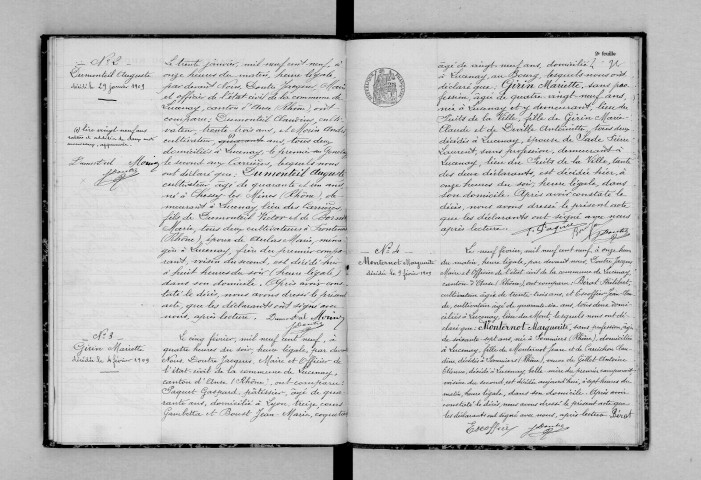 N° 2
Dumonteil Auguste
décédé le 29 janvier 1909
(1) lire vingt neuf ans
Dumonteil Moiny
Le trente janvier, mil neuf cent neuf, à
onze heures du matin, heure légale,
par devant Nous, Doutre Jacques, Maire
et officier de l'état civil de la commune de
Lucenay, canton d'Anse (Rhône), ont
comparu: Dumonteil Claudius, culti-
vateur, trente trois ans, et
cultivateur, ans, tous deux
domiciliés à Lucenay, le premier
le second aux Carrières, lesquels nous
ont déclaré que: Dumonteil Auguste
cultivateur, âgé de quarante et un ans,
né à Chessy les Mines (Rhône), de-
meurant à Lucenay, lieu des Carrières,
fils de Dumonteil Victor et de
Marie, tous deux cultivateurs à
(Rhône), époux de Marie, ména-
gère à Lucenay, frère du premier compa-
rant, voisin du second, est décédé hier
à huit heures du soir (heure légale)
dans son domicile. Après avoir cons-
taté le décès, nous avons dressé le présent
acte, que les déclarants ont signé avec
nous, après lecture. Dumonteil Moiny
N° 3
Girin Mariette
décédée le 4 février 1909
Le cinq février, mil neuf cent neuf, à
quatre heures du soir, heure légale, par devant
Nous Doutre Jacques, Maire et Officier de
l'état civil de la commune de Lucenay,
canton d'Anse (Rhône), ont comparu:
Paquet Gaspard, pâtissier, âgé de qua-
rante ans, domicilié à Lyon, treize, cours
Gambetta et Jean Marie,
2e feuille
âgé de vingt neuf ans, domicilié
à Lucenay, au Bourg, lesquels nous ont
déclaré que: Girin Mariette, sans pro-
fession, âgée de quatre vingt neuf ans,
née à Lucenay et y demeurant, lieu du
Puits de la Ville, fille de Girin Marie
Claude et de Antoinette, tous deux
décédés à Lucenay, épouse de
Laurent, sans profession, demeurant à
Lucenay, lieu du Puits de la Ville, tante
des deux déclarants, est décédée hier, à
onze heures du soir, heure légale, dans
son domicile. Après avoir constaté le
décès, nous avons dressé le présent acte
que les déclarants ont signé avec nous
après lecture.
N° 4
Monternot Marguerite
décédée le 9 février 1909
Le neuf février, mil neuf cent neuf, à onze heures
du matin, heure légale, par devant nous, Doutre Jacques
Maire et Officier de l'état civil de la commune de Lucenay,
canton d'Anse (Rhône), ont comparu: Bérat Philibert,
cultivateur, âgé de trente trois ans, et Escoffier Jean Clau-
de, cultivateur, âgé de quarante six ans, tous deux domi-
ciliés à Lucenay, lieu du Mont, lesquels nous ont dé-
claré que: Monternot Marguerite, sans profession, âgée
de soixante sept ans, née à Pommiers (Rhône), domiciliée
à Lucenay, fille de Monternot Jean et de Clau-
dine, décédés à Pommiers (Rhône), veuve de Antoine
Etienne, décédé à Lucenay,
voisine du second, est décédée aujourd'hui, à sept heures du
matin, heure légale, dans son domicile. Après avoir
constaté le décès, nous avons dressé le présent acte que
les déclarants ont signé avec nous, après lecture. Bérat
Escoffier